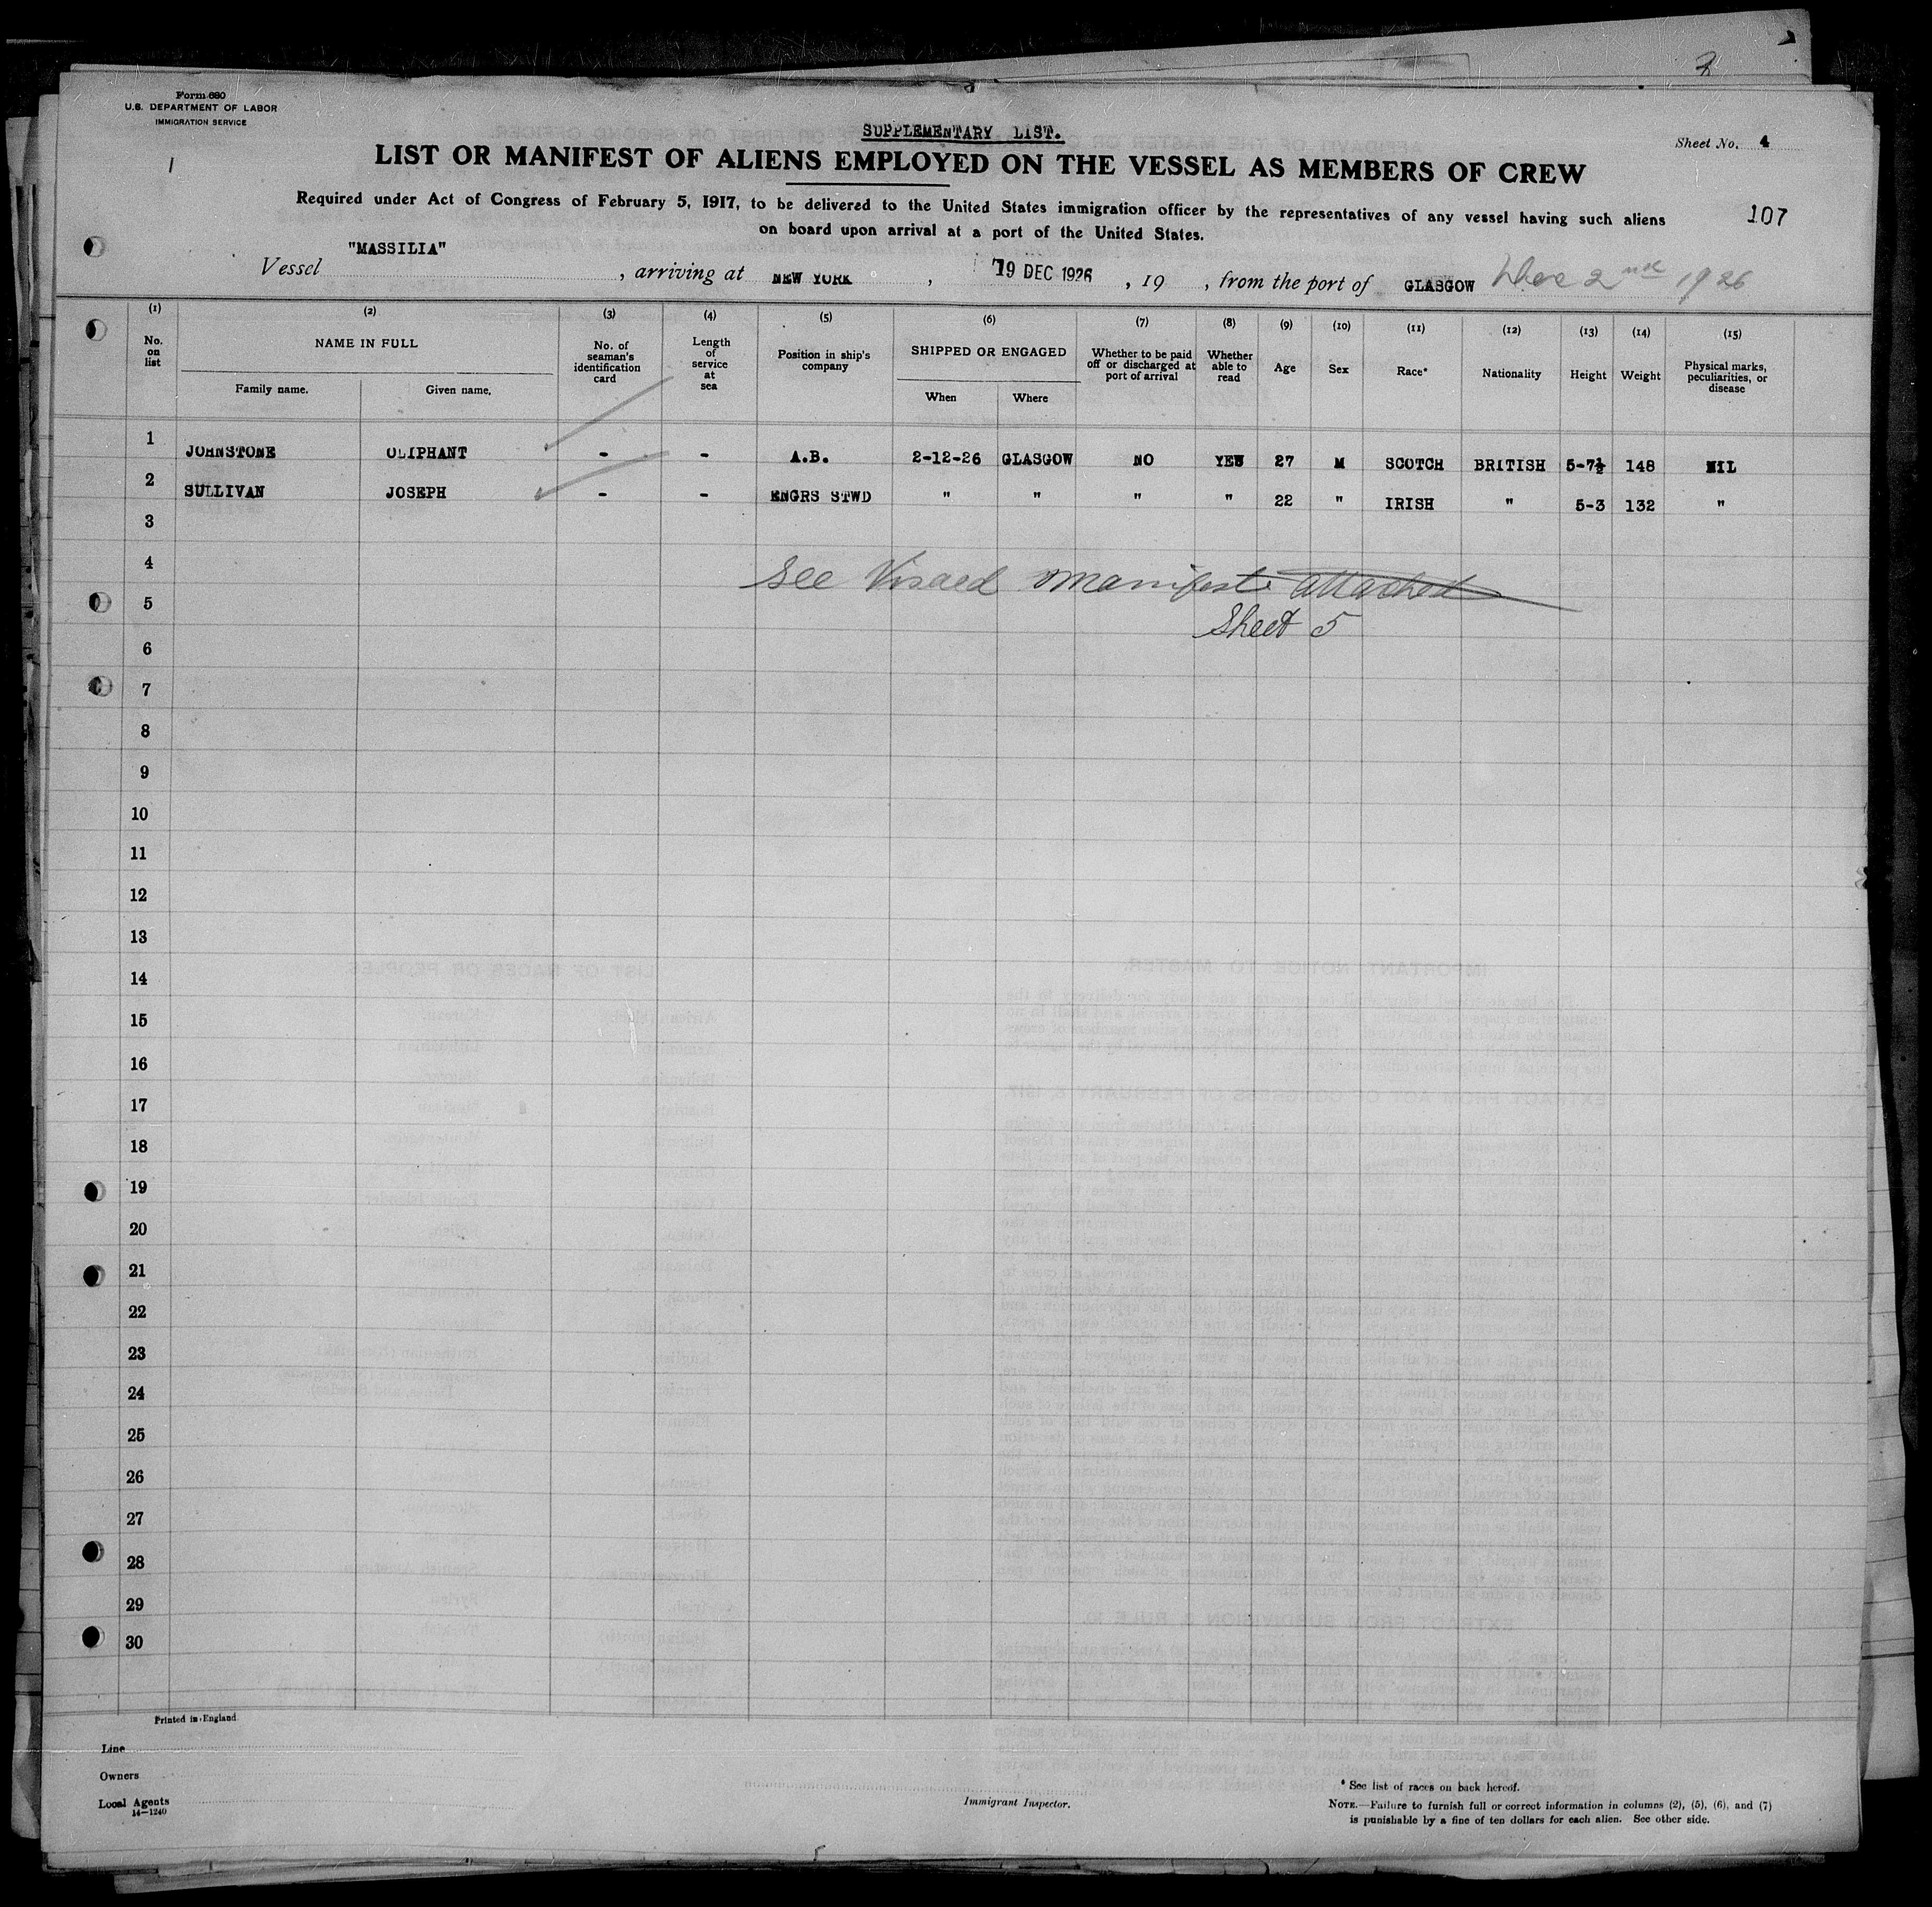 2
Form 680
U.S. DEPARTMENT OF LABOR
IMMIGRATION SERVICE
SUPPLEMENTARY LIST.
Sheet No. 4
1
LIST OR MANIFEST OF ALIENS EMPLOYED ON THE VESSEL AS MEMBERS OF CREW
Required under Act of Congress of February 5, 1917, to be delivered to the United States immigration officer by the representatives of any vessel having such aliens
on board upon arrival at a port of the United States.
107
Vessel "MASSILIA", arriving at NEW YORK, 19 DEC 1926, 19 , from the port of GLASGOW Dec 2nd 1926
(1) (2) (3) (4) (5) (6) (7) (8) (9) (10) (11) (12) (13) (14) (15)
No. on list
NAME IN FULL
Family name. Given name.
No. of seaman's identification card
Length of service at sea
Position in ship's company
SHIPPED OR ENGAGED
When Where
Whether to be paid off or discharged at port of arrival
Whether able to read
Age
Sex
Race*
Nationality
Height
Weight
Physical marks, peculiarities, or disease
1 JOHNSTONE OLIPHANT - - A.B. 2-12-26 GLASGOW NO YES 27 M SCOTCH BRITISH 5-7½ 148 NIL
2 SULLIVAN JOSEPH - - ENGRS STWD " " " " 22 " IRISH " 5-3 132 "
3
4
See Visaed Manifest attached
5
Sheet 5
6
7
8
9
10
11
12
13
14
15
16
17
18
19
20
21
22
23
24
25
26
27
28
29
30
Printed in England
Line
Owners
Local Agents
14-1240
Immigrant Inspector.
* See list of races on back hereof.
NOTE.—Failure to furnish full or correct information in columns (2), (5), (6), and (7)
is punishable by a fine of ten dollars for each alien. See other side.